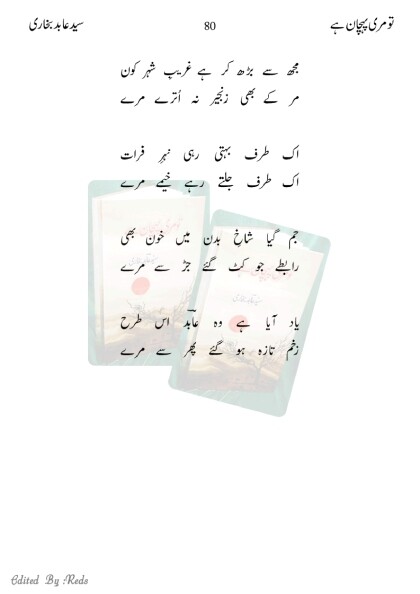 تو مری پہچان ہے 80 سید عابد بخاری
مجھ سے بڑھ کر ہے غریب شہر کون
مر کے بھی زنجیر نہ اُترے مرے
اک طرف بہتی رہی نہرِ فرات
اک طرف جلتے رہے خیمے مرے
جم گیا شاخِ بدن میں خون بھی
رابطے جو کٹ گئے جڑ سے مرے
یاد آیا ہے وہ عابدؔ اس طرح
زخم تازہ ہو گئے پھر سے مرے
Edited By Reds